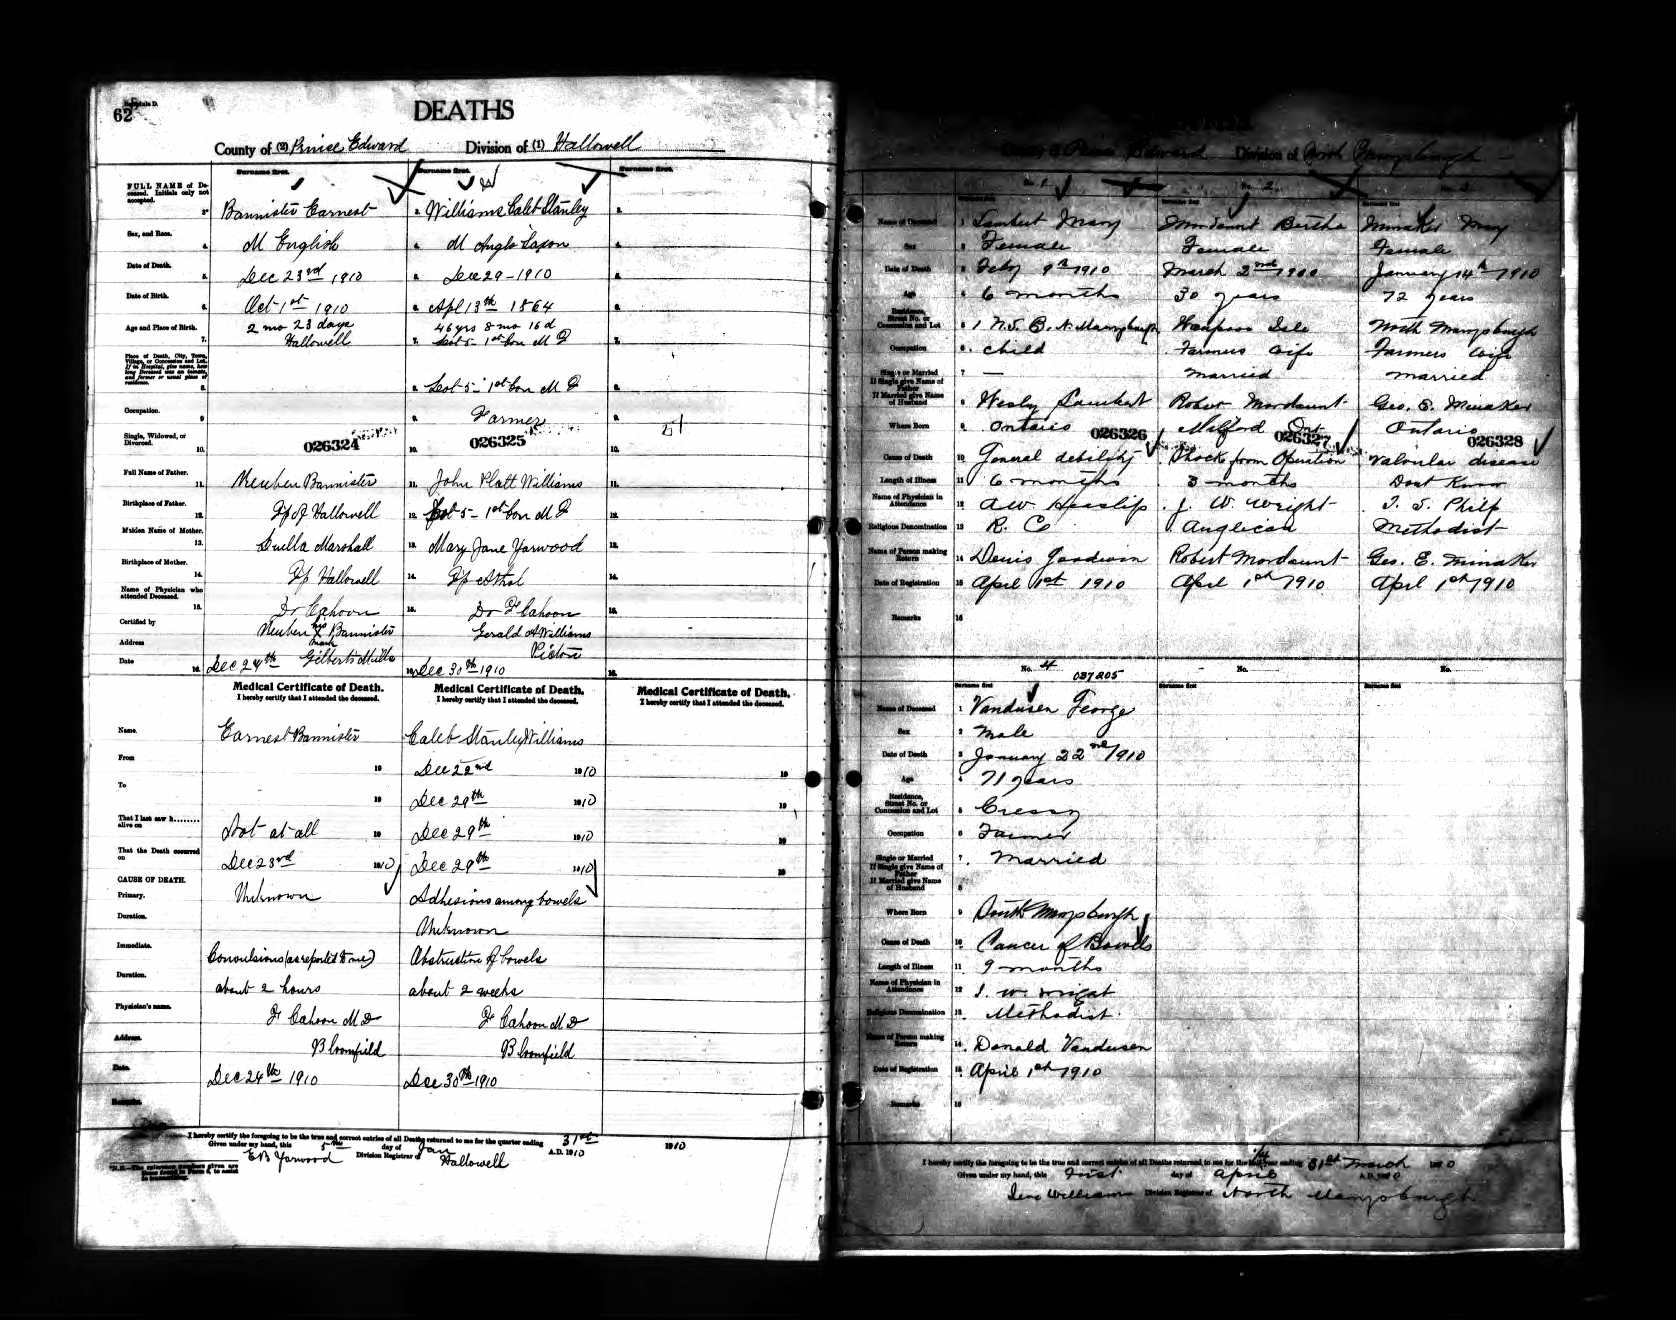 62
DEATHS
County of (2) Prince Edward Division of (1) Hallowell
Surname first. Surname first. Surname first.
FULL NAME of Deceased. Initials only not accepted. Bannister Earnest 2. Williams Caleb Stanley 2.
Sex, and Race. 4. M English 4. M Anglo Saxon 4.
Date of Death. 5. Dec 23rd 1910 5. Dec 29 - 1910 5.
Date of Birth. 6. Oct 1st 1910 6. Apl 13th 1864 6.
Age and Place of Birth. 2 mo 23 days 46 yrs 8 mo 16 d
7. Hallowell 7. Lot 5 - 1st Con M 7.
Place of Death, City, Town, Village, or Concession and Lot. If in Hospital, give name, how long Deceased was an inmate, and former or usual place of residence.
8. 8. Lot 5 - 1st Con M 8.
Occupation. 9 9. Farmer 9.
Single, Widowed, or Divorced. 10. 026324 10. 026325 10.
Full Name of Father. 11. Reuben Bannister 11. John Platt Williams 11.
Birthplace of Father. 12. Tp of Hallowell 12. Lot 5 - 1st Con M 12.
Maiden Name of Mother. 13. Marshall 13. Mary Jane Yarwood 13.
Birthplace of Mother. 14. Tp Hallowell 14. Tp Athol 14.
Name of Physician who attended Deceased. 15. Dr Cahoon 15. Dr F Cahoon 15.
Certified by Reuben his X mark Bannister Gerald A Williams
Address Gilberts Mills Picton
Date 16. Dec 24th 16. Dec 30th 1910 16.
Medical Certificate of Death. Medical Certificate of Death. Medical Certificate of Death.
I hereby certify that I attended the deceased. I hereby certify that I attended the deceased. I hereby certify that I attended the deceased.
Name. Earnest Bannister Caleb Stanley Williams
From 19 Dec 22nd 1910 19
To 19 Dec 29th 1910 19
That I last saw h........ alive on Not at all 19 Dec 29th 1910 19
That the Death occurred on Dec 23rd 1910 Dec 29th 1910 19
CAUSE OF DEATH.
Primary. Unknown Adhesions among bowels
Duration. Unknown
Immediate. Convulsions (as reported to me) Obstruction of bowels
Duration. about 2 hours about 2 weeks
Physician's name. F Cahoon M D F Cahoon M D
Address. Bloomfield Bloomfield
Date. Dec 24th 1910 Dec 30th 1910
Remarks.
I hereby certify the foregoing to be the true and correct entries of all Deaths returned to me for the quarter ending 31st 1910
Given under my hand, this 5th day of Jan A.D. 1910
E B Yarwood Division Registrar of Hallowell
Edward Division of North Marysburgh
No. 1 No. 2 No. 3
Name of Deceased 1 Lambert Mary Mordaunt Bertha Minaker Mary
Sex 2 Female Female Female
Date of Death 3 Feby 9th 1910 March 2nd 1910 January 14th 1910
Age 4 6 months 30 years 72 years
Residence, Street No. or Concession and Lot 5 1 N.S. B. N. Marysburgh Waupoos Isle North Marysburgh
Occupation 6 child Farmers wife Farmers wife
Single or Married 7 — married married
If Single give Name of Father If Married give Name of Husband 8 Wesley Lambert Robert Mordaunt Geo. E. Minaker
Where Born 9 Ontario 026326 Milford Ont 026327 Ontario 026328
Cause of Death 10 General debility Shock from Operation valvular disease
Length of Illness 11 6 months 3 months Dont Know
Name of Physician in Attendance 12 A W Heaslip J. W. Wright T. S. Philp
Religious Denomination 13 R. C Anglican Methodist
Name of Person making Return 14 Denis Goodwin Robert Mordaunt Geo. E. Minaker
Date of Registration 15 April 1st 1910 April 1st 1910 April 1st 1910
Remarks 16
No. 4 No. No.
037205
Surname first Surname first Surname first
Name of Deceased 1 Vandusen George
Sex 2 Male
Date of Death 3 January 22nd 1910
Age 4 71 years
Residence, Street No. or Concession and Lot 5 Cressy
Occupation 6 Farmer
Single or Married 7. Married
If Single give Name of Father If Married give Name of Husband 8
Where Born 9 South Marysburgh
Cause of Death 10 Cancer of Bowels
Length of Illness 11. 9 months
Name of Physician in Attendance 12 J. W. Wright
Religious Denomination 13. Methodist
Name of Person making Return 14. Donald Vandusen
Date of Registration 15. April 1st 1910
Remarks 16
I hereby certify the foregoing to be the true and correct entries of all Deaths returned to me for the ending 31st March 1910
Given under my hand, this First day of April A.D. 1910
Williams Division Registrar of North Marysburgh